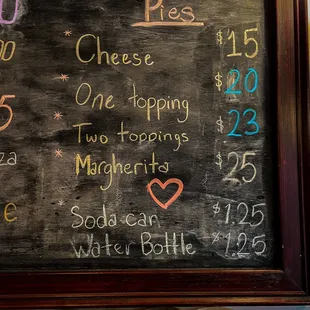 Pies
* Cheese $15
* One topping $20
* Two toppings $23
* Margherita $25
* Soda can $1.25
Water Bottle $1.25